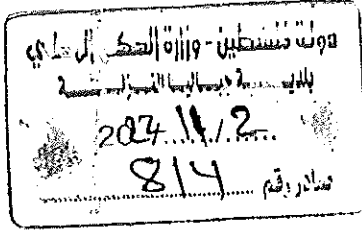 دولة فلسطين - وزارة الحكم المحلي
بلدية جباليا النزلة
2024/11/2
صادر رقم 814